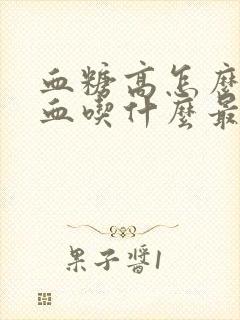 血糖高怎麼
血喫什麼最
果子醬1